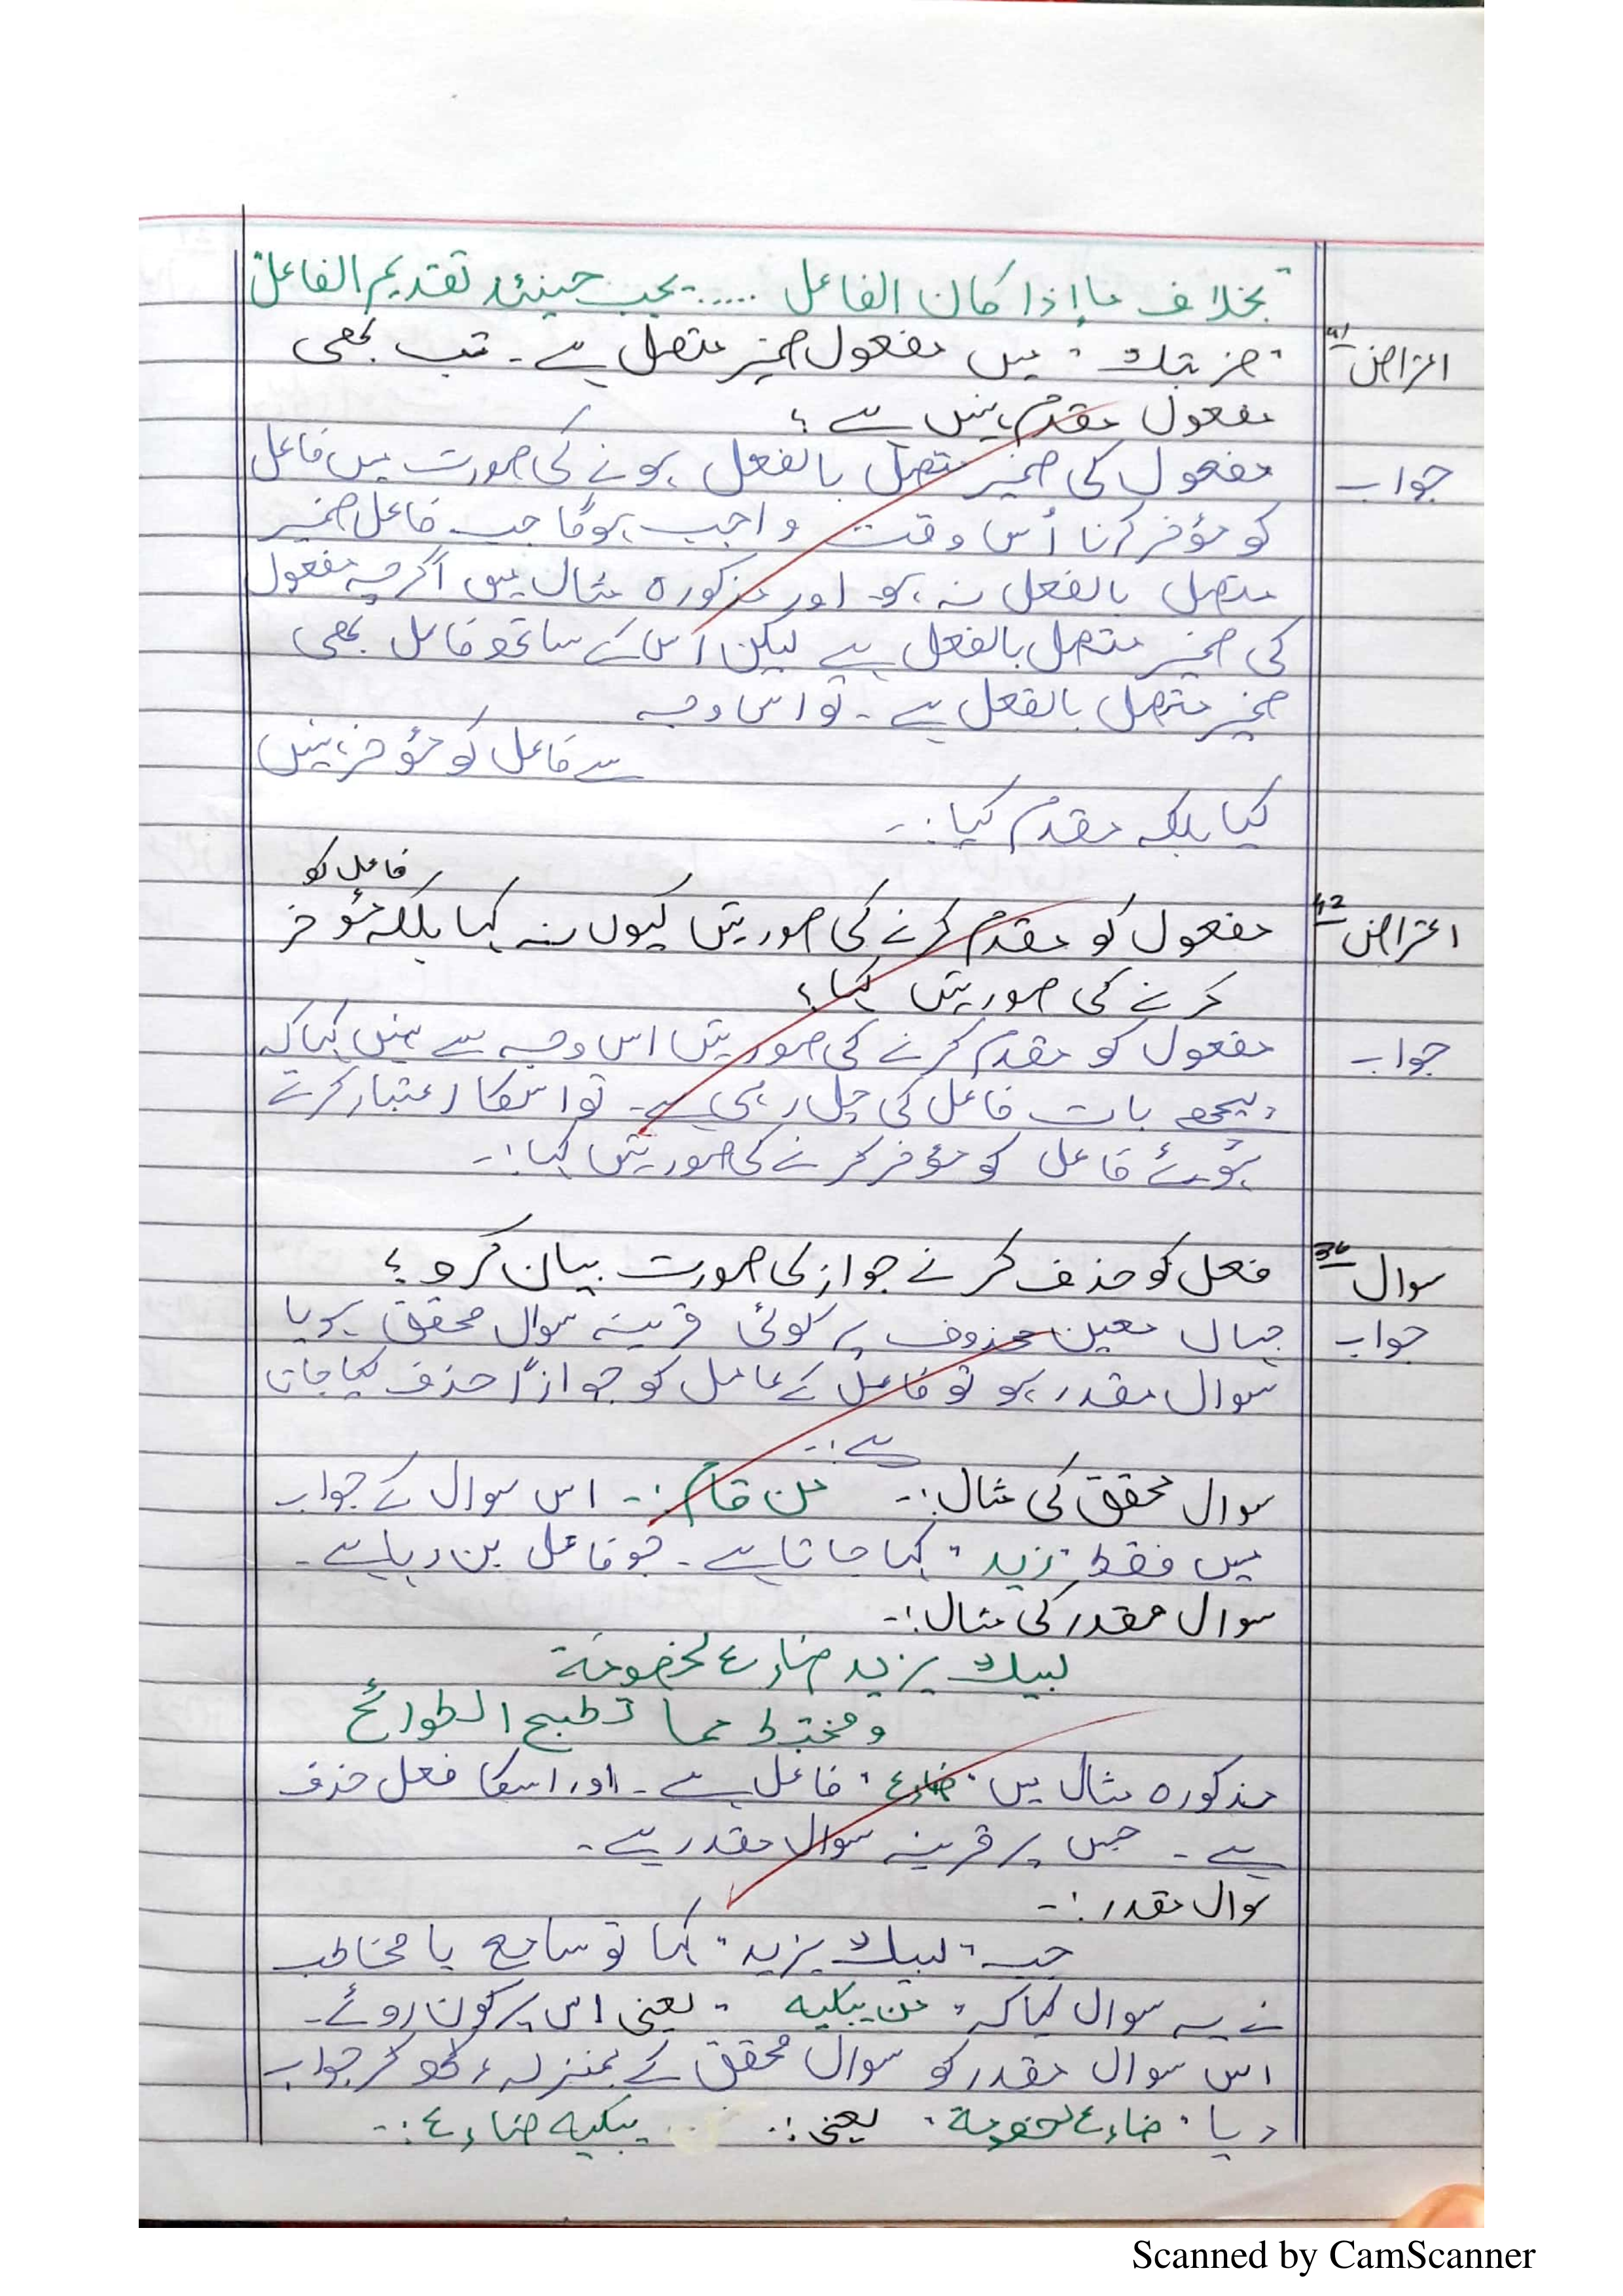 "بخلاف ما إذا كان الفاعل ..... يجب حينئذ تقديم الفاعل"
اعتراض 41 "ضربتك" میں مفعول ضمیر متصل ہے۔ تب بھی
مفعول مقدم نہیں ہے؟
جواب مفعول کی ضمیر متصل بالفعل ہونے کی صورت میں فاعل
کو مؤخر کرنا اُس وقت واجب ہوگا جب فاعل ضمیر
متصل بالفعل نہ ہو۔ اور مذکورہ مثال میں اگرچہ مفعول
کی ضمیر متصل بالفعل ہے لیکن اس کے ساتھ فاعل بھی
ضمیر متصل بالفعل ہے۔ تو اس وجہ
سے فاعل کو مؤخر نہیں
کیا بلکہ مقدم کیا:۔
فاعل کو
اعتراض 42 مفعول کو مقدم کرنے کی صورتیں کیوں نہ کہا بلکہ مؤخر
کرنے کی صورتیں کہا؟
جواب مفعول کو مقدم کرنے کی صورتیں اس وجہ سے نہیں کہا کہ
پیچھے بات فاعل کی چل رہی ہے۔ تو اسکا اعتبار کرتے
ہوئے فاعل کو مؤخر کرنے کی صورتیں کہا:۔
سوال 36 فعل کو حذف کرنے جواز کی صورت بیان کرو؟
جواب جہاں معین محذوف پر کوئی قرینہ سوال محقق ہو یا
سوال مقدر ہو تو فاعل کے عامل کو جوازاً حذف کیا جاتا
ہے:۔
سوال محقق کی مثال:۔ من قام:۔ اس سوال کے جواب
میں فقط "زید" کہا جاتا ہے۔ جو فاعل بن رہا ہے۔
سوال مقدر کی مثال:۔
لیبك یزید ضارع لخصومة
ومختبط مما تطيح الطوائح
مذکورہ مثال میں "ضارع" فاعل ہے۔ اور اسکا فعل حذف
ہے۔ جس پر قرینہ سوال مقدر ہے۔
سوال مقدر:۔
جب "لیبك یزید" کہا تو سامع یا مخاطب
نے یہ سوال کیا کہ "من یبکیه" یعنی اس پر کون روئے۔
اس سوال مقدر کو سوال محقق کے بمنزلہ رکھ کر جواب
دیا "ضارع لخصومة" یعنی:۔ یبکیه ضارع:۔
Scanned by CamScanner